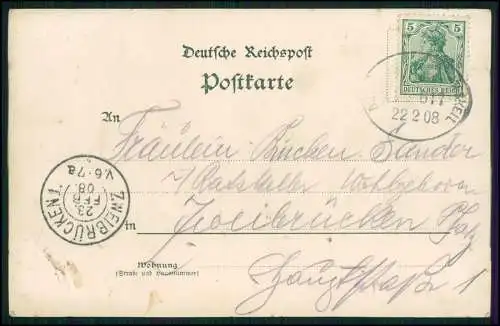 Deutsche Reichspost
Postkarte
5 5
DEUTSCHES REICH
22 2 08
An
Fräulein
Wohlgeboren
in Zweibrücken Pfalz
Wohnung
(Straße und Hausnummer)
Hauptstraße 1
ZWEIBRÜCKEN 1
23
FEB
08
V.6-7a